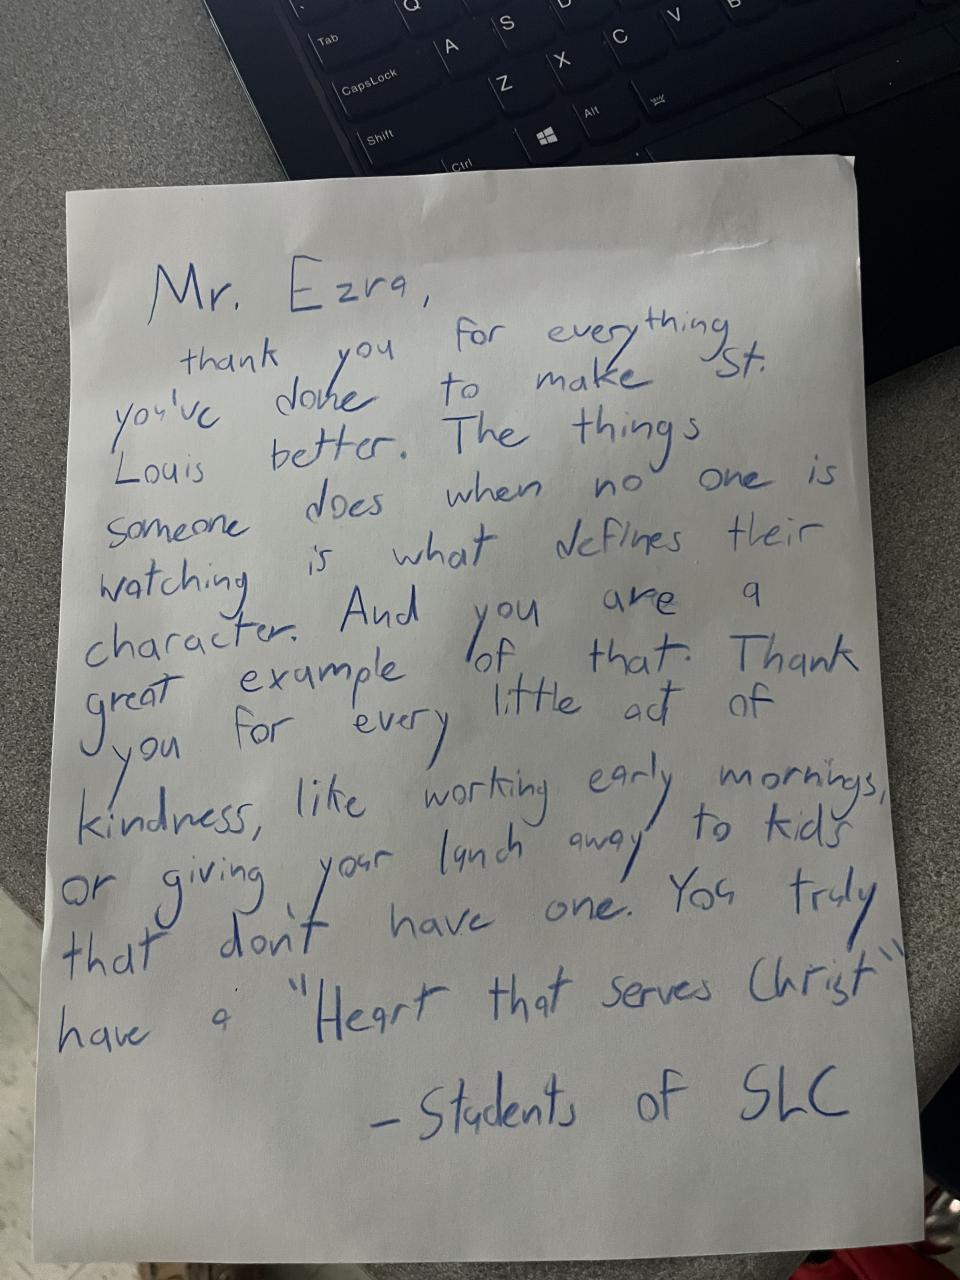 Q
Tab
A S D
CapsLock
Z X C V B
Shift
Alt
Ctrl
Mr. Ezra,
thank you for everything
you've done to make St.
Louis better. The things
someone does when no one is
watching is what defines their
character. And you are a
great example of that. Thank
you for every little act of
kindness, like working early mornings,
or giving your lunch away to kids
that don't have one. You truly
have a "Heart that serves Christ"
- Students of SLC